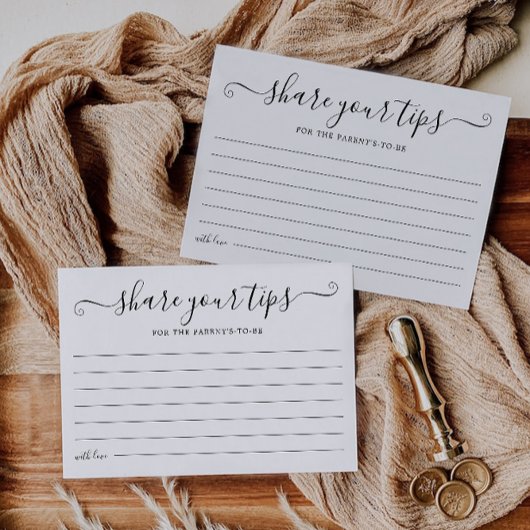 share your tips
FOR THE PARENT'S-TO-BE
with love
share your tips
FOR THE PARENY'S-TO-BE
with love